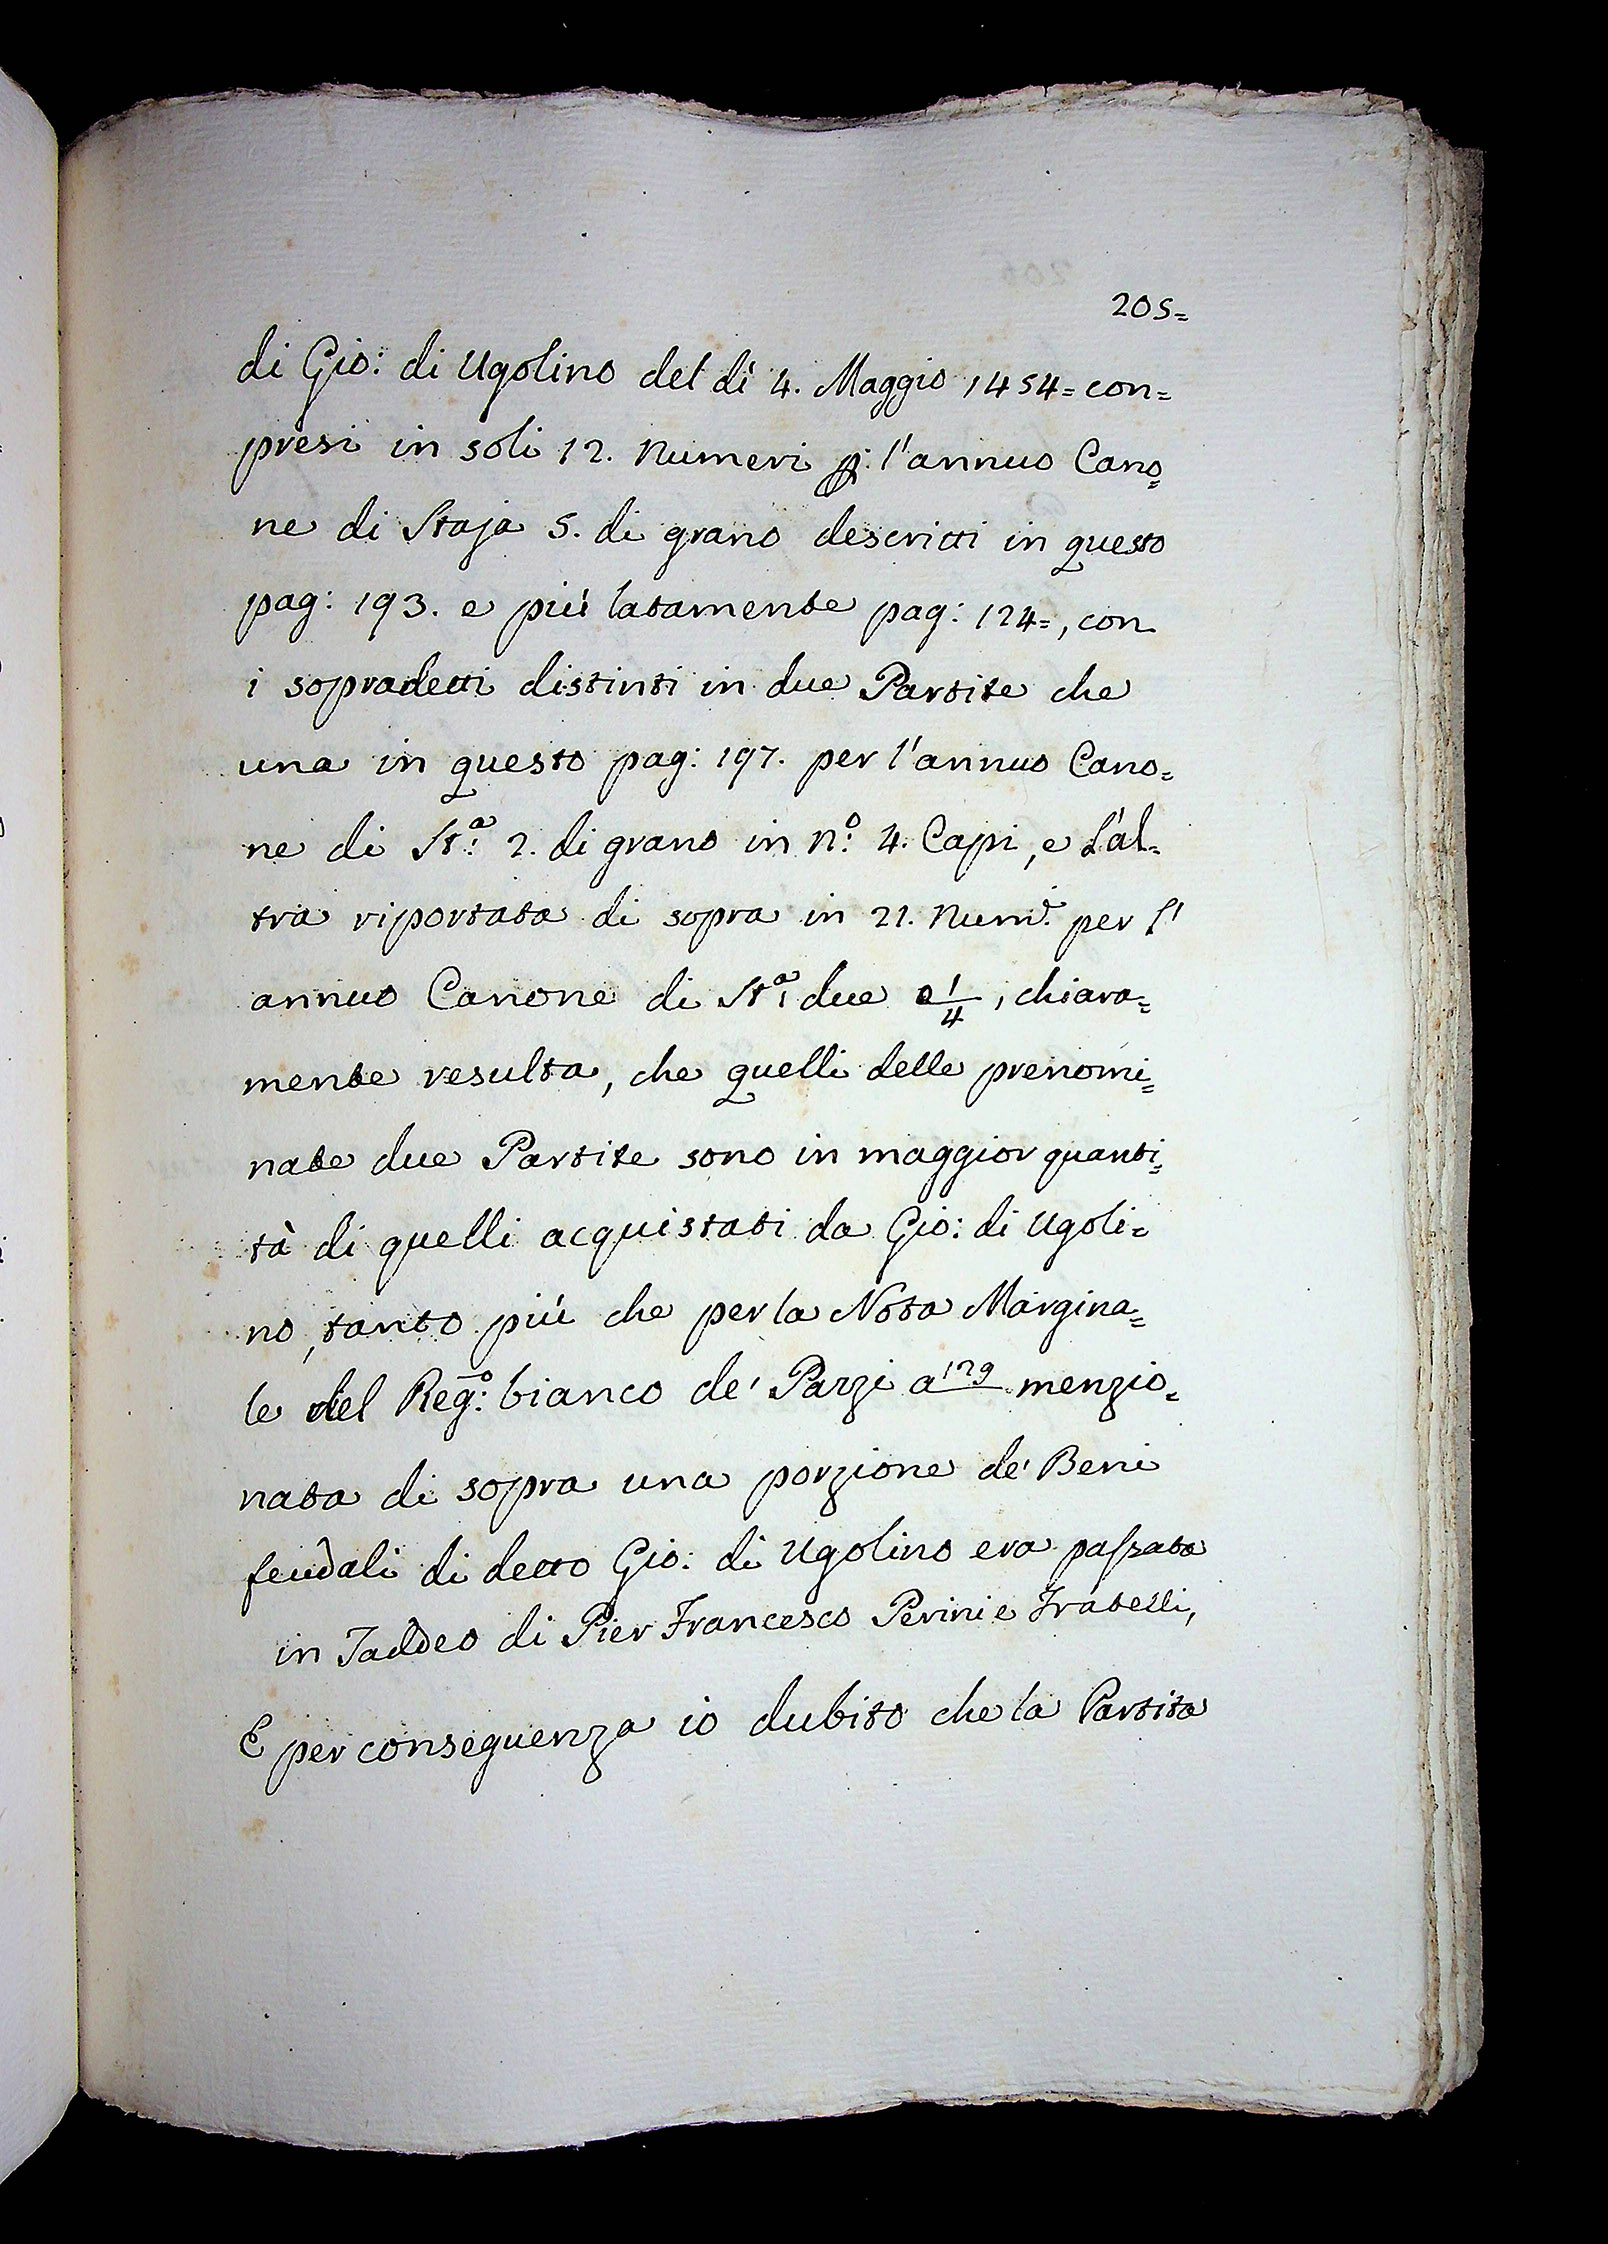 205=
di Gio: di Ugolino del di 4. Maggio 1454= con=
presi in soli 12. Numeri p: l'annuo Cano=
ne di Staja 5. di grano descritti in questo
pag: 193. e più latamente pag: 124=, con
i sopradetti distinti in due Partite che
una in questo pag: 197. per l'annuo Cano=
ne di St:ª 2. di grano in N:º 4. Capi, e l'al=
tra riportata di sopra in 21. Num:i per l'
annuo Canone di St:ª due e 1/4, chiara=
mente resulta, che quelli delle prenomi=
nate due Partite sono in maggior quanti=
tà di quelli acquistati da Gio: di Ugoli=
no, tanto più che per la Nota Margina=
le del Reg:º bianco de' Pazzi a 129 menzio=
nata di sopra una porzione de' Beni
feudali di detto Gio: di Ugolino era passata
in Taddeo di Pier Francesco Perini e Fratelli,
E per conseguenza io dubito che la Partita